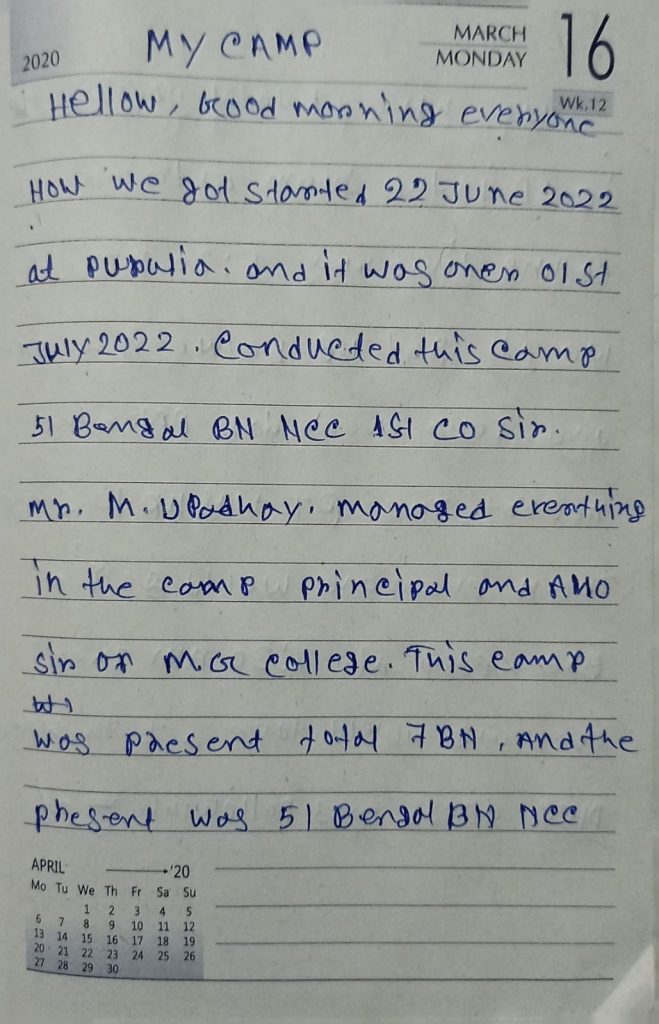 2020 MY CAMP MARCH MONDAY 16
Wk.12
Hellow, Good morning everyone
How we got started 22 June 2022
at puralia. and it was oner 01st
July 2022. Conducted this camp
51 Bengal BN NCC 1st CO Sir.
Mr. M. Upadhay. managed erenthing
in the camp principal and ANO
sir or M.G college. This camp
was present total 7 BN, And the
present was 51 Bengal BN NCC
APRIL '20
Mo Tu We Th Fr Sa Su
1 2 3 4 5
6 7 8 9 10 11 12
13 14 15 16 17 18 19
20 21 22 23 24 25 26
27 28 29 30